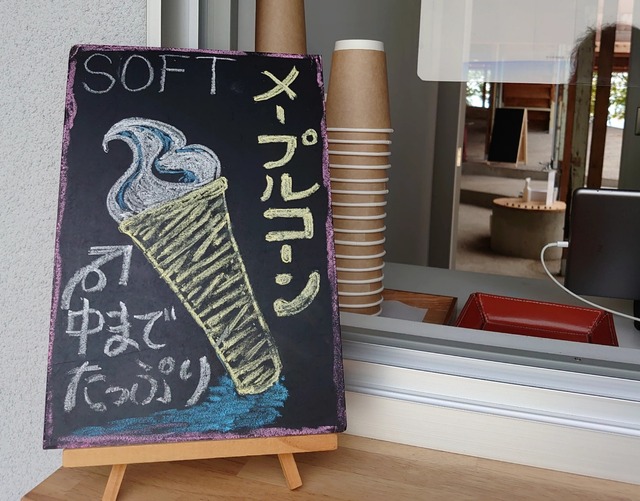 SOFT
メープルコーン
中まで
たっぷり